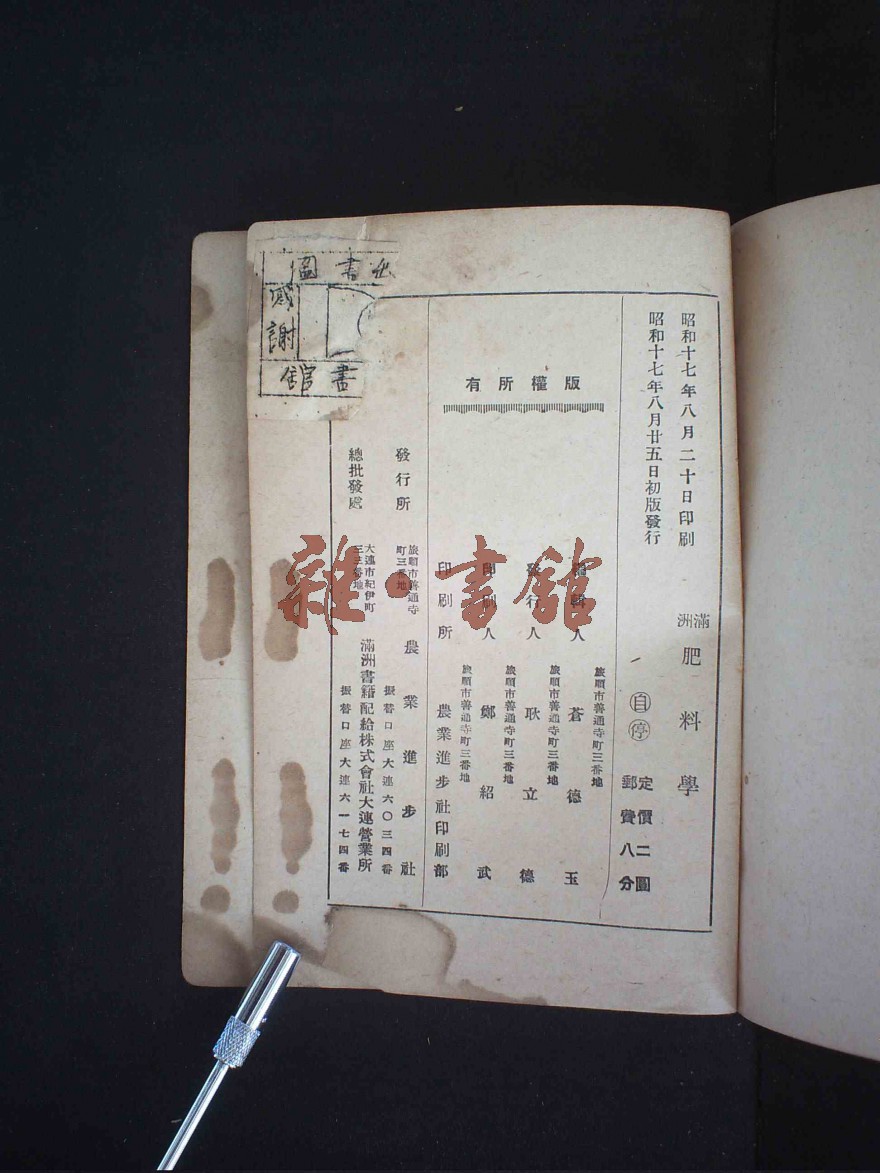 昭和十七年八月二十日印刷
昭和十七年八月廿五日初版發行
滿洲 肥料學
自停
定價二圓
郵費八分
版權所有
旅順市善通寺町三番地
編輯人 蒼德玉
旅順市善通寺町三番地
發行人 耿立德
旅順市善通寺町三番地
印刷人 鄭紹武
旅順市善通寺町三番地
印刷所 農業進步社印刷部
發行所 旅順市善通寺町三番地 農業進步社
振替口座大連六〇三四番
總批發處 大連市紀伊町三番地 滿洲書籍配給株式會社大連營業所
振替口座大連六一七四番
圖書
感謝
書館
雜·書館